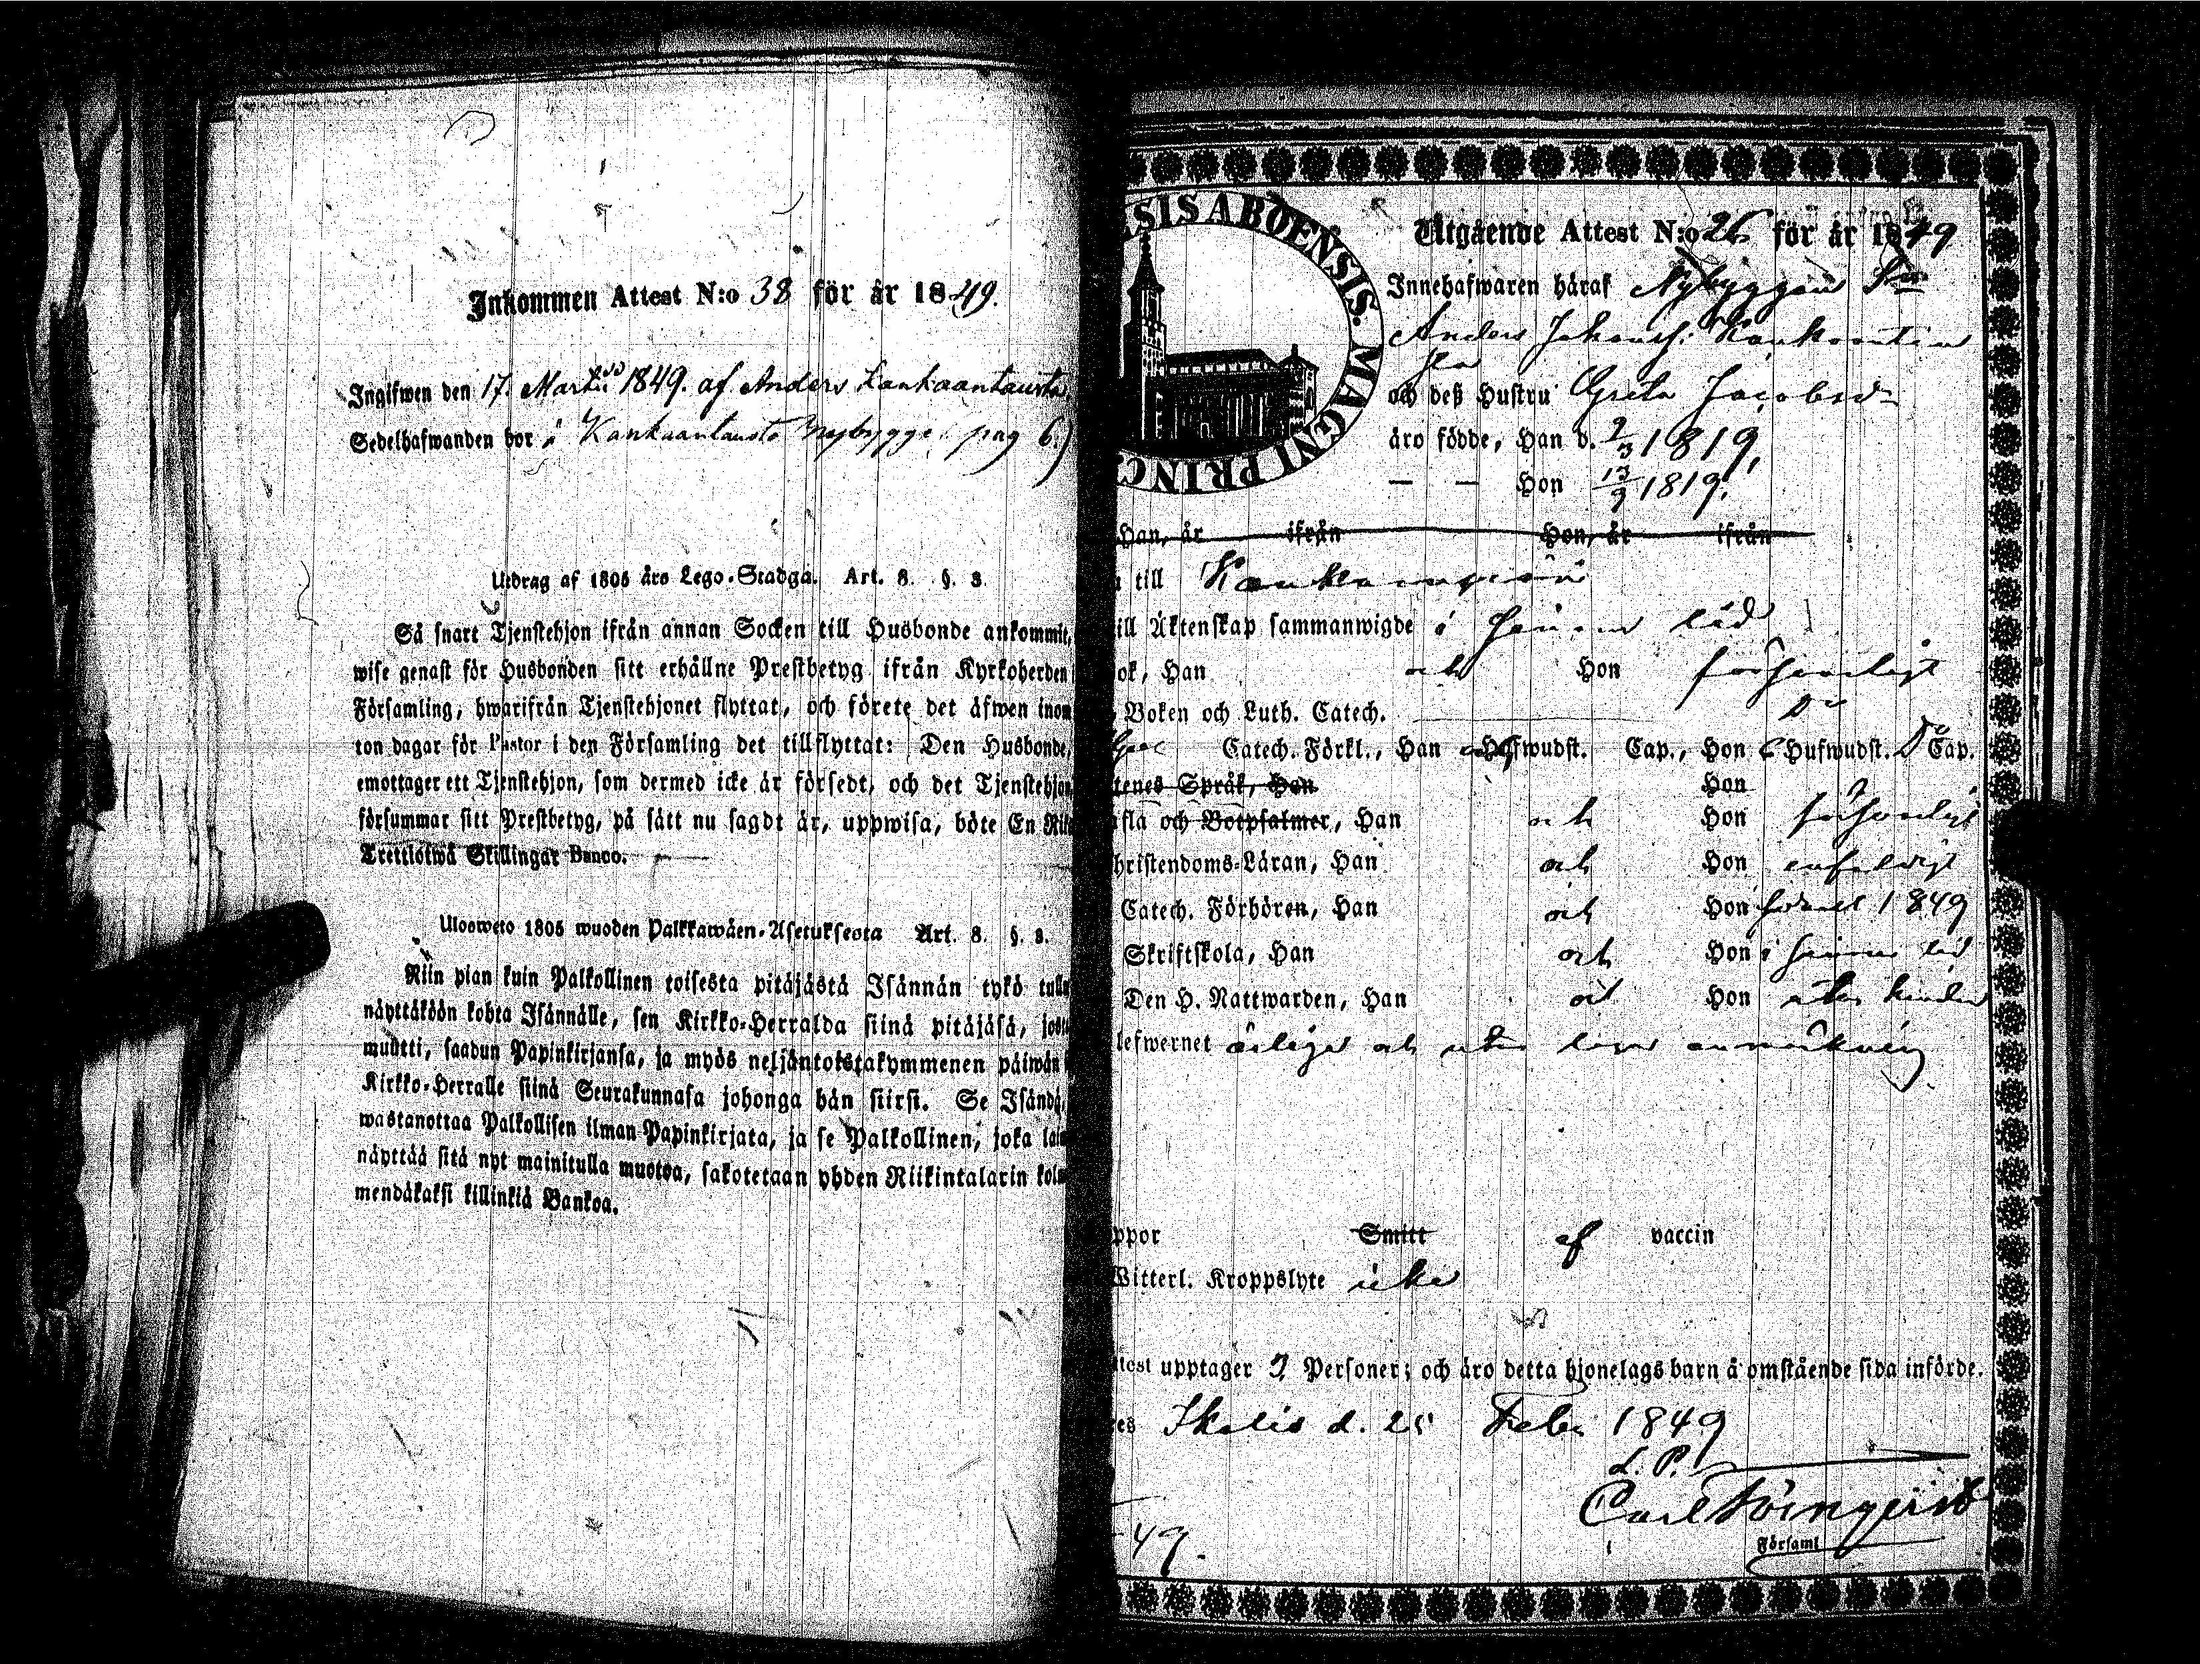 Inkommen Attest N:o 38 för år 1849.
Ingifwen den 17. Martii 1849. af Anders Kankaantausta
Sedelhafwanden bor å Kankaantausta nybygge (pag 6.)
Utdrag af 1805 års Lego-Stadga. Art. 8. §. 3
Så snart Tjenstehjon ifrån annan Socken till Husbonde ankommit,
wise genast för Husbonden sitt erhållne Prestbetyg ifrån Kyrkoherden
Församling, hwarifrån Tjenstehjonet flyttat, och förete det äfwen inom
ton dagar för Pastor i den Församling det tillflyttat: Den Husbonde,
emottager ett Tjenstehjon, som dermed icke är försedt, och det Tjenstehjon
försummar sitt Prestbetyg, på sätt nu sagdt är, uppwisa, böte En Rik
Trettiotwå Skillingar Banco.
Ulosweto 1805 wuoden Palkkawäen-Asetuksesta Art. 8. §. 3.
Niin pian kuin Palkollinen toisesta pitäjästä Isännän tykö tulle
näyttäköön kohta Isännälle, sen Kirkko-Herralda siinä pitäjäsä, josta
muutti, saadun Papinkirjansa, ja myös neljäntoistakymmenen päiwän
Kirkko-Herralle siinä Seurakunnasa johonga hän siirsi. Se Isändä,
wastanottaa Palkollisen ilman Papinkirjata, ja se Palkollinen, joka lai
näyttää sitä nyt mainitulla muotoa, sakotetaan yhden Riikintalarin kolm
mendäkaksi killinkiä Bankoa.
SIS ABOENSIS. MAGNI PRINC
Utgående Attest N:o 26 för år 1849
Innehafwaren häraf Nybyggaren
Anders Johansf.
och deß Hustru Greta Jacobsdr
äro födde, Han d. 9/3 1819,
— — Hon 13/9 1819.
Han, är ifrån Hon, är ifrån
till
ill Äktenskap sammanwigde i sinom tid
ok, Han och Hon försvarligt
Boken och Luth. Catech. Do
Catech. Förkl., Han och Hufwudst. Cap., Hon 6 Hufwudst. Do Cap.
tenes Språk, Han Hon
fla och Botpsalmer, Han och Hon försvarligt
hristendoms-Läran, Han och Hon enfaldigt
Catech. Förhören, Han och Hon 1849
Skriftskola, Han och Hon i sinom tid
Den H. Nattwarden, Han och Hon utan hinder
lefwernet ärliga och utan laga anmärkning
ppor Smitt af vaccin
Witterl. Kroppslyte icke
ttest upptager 3 Personer; och äro detta hjonelags barn å omstående sida införde.
es Ikalis d. 25 Febr 1849
L. P.
Carl
Församl
49.